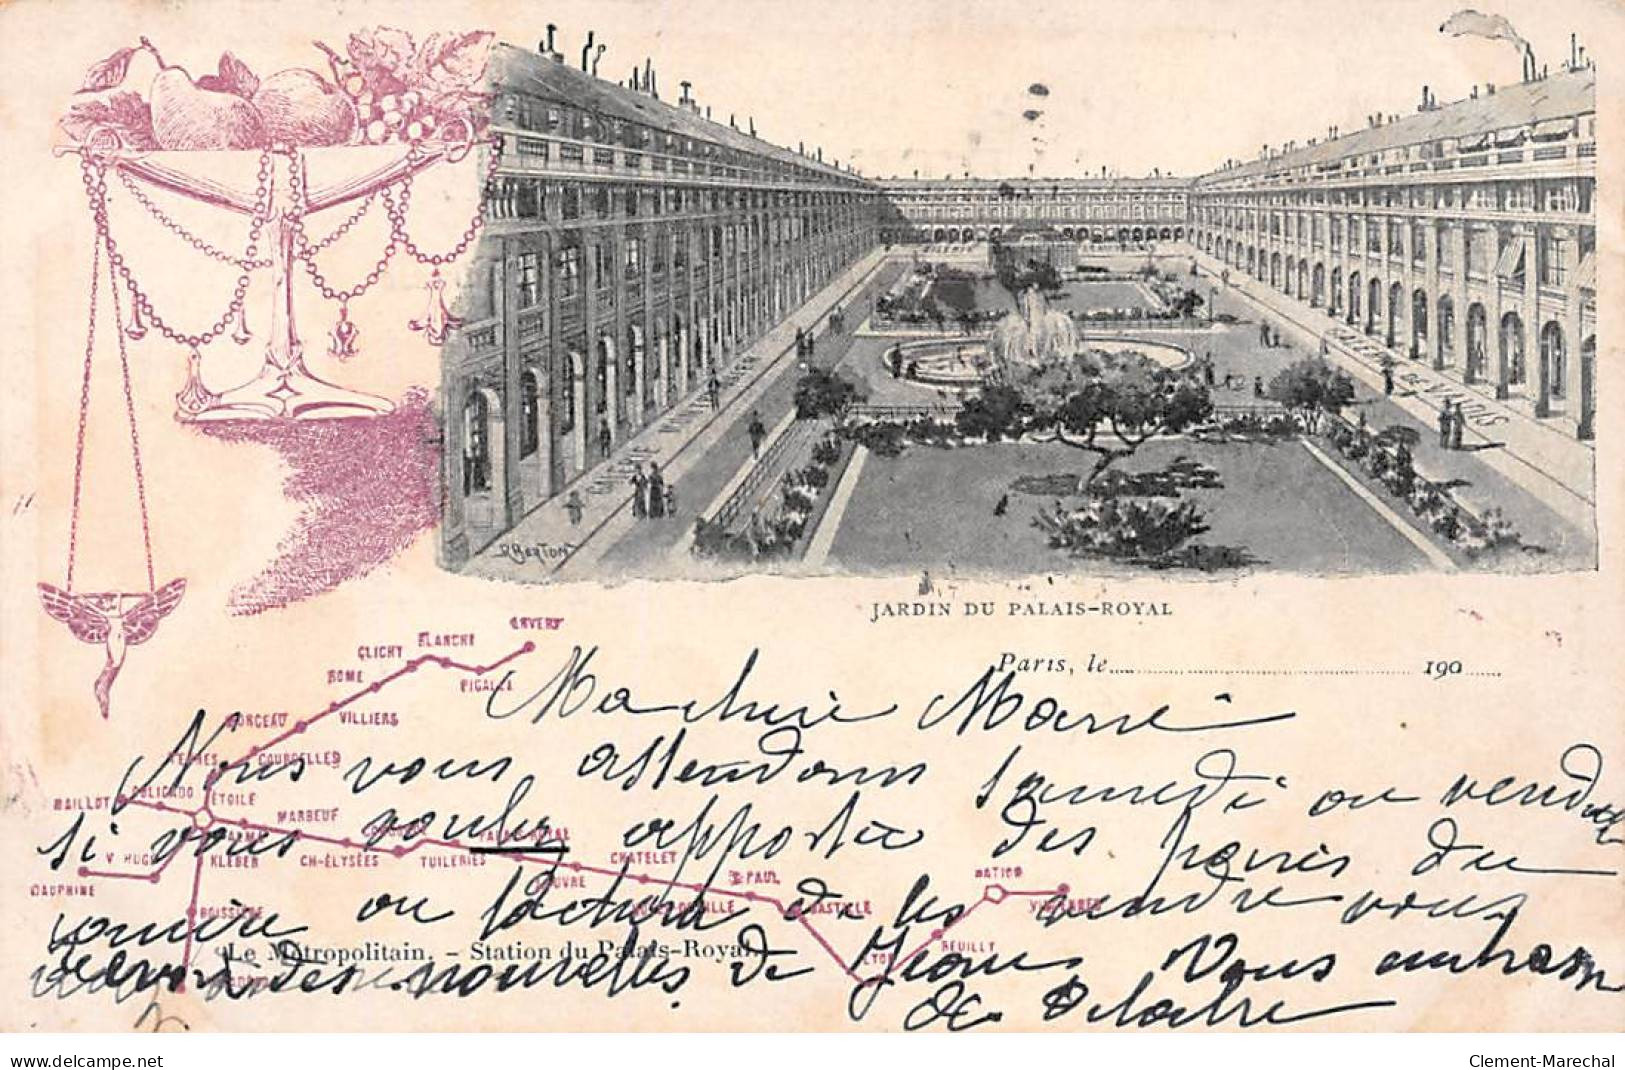 GALERIE DE VALOIS
D Berton
JARDIN DU PALAIS-ROYAL
Paris, le 190
ANVERS
BLANCHE
CLICHY
PIGALLE
ROME
VILLIERS
MONCEAU
COURCELLES
TERNES
Ma chère Marie
Nous vous attendons samedi ou vendredi
MAILLOT
OBLIGADO
ÉTOILE
MARBEUF
si vous voulez apporter des
du
ALMA
KLÉBER
CH-ÉLYSÉES
CONCORDE
TUILERIES
PALAIS-ROYAL
LOUVRE
CHATELET
S-PAUL
BASTILLE
NATION
VINCENNES
V HUGO
DAUPHINE
BOISSIÈRE
REUILLY
LYON
ou
de les vendre vous
"Le Métropolitain. - Station du Palais-Royal.
des nouvelles de Jeanne Vous embrasse
delcampe.net
Clement-Marechal